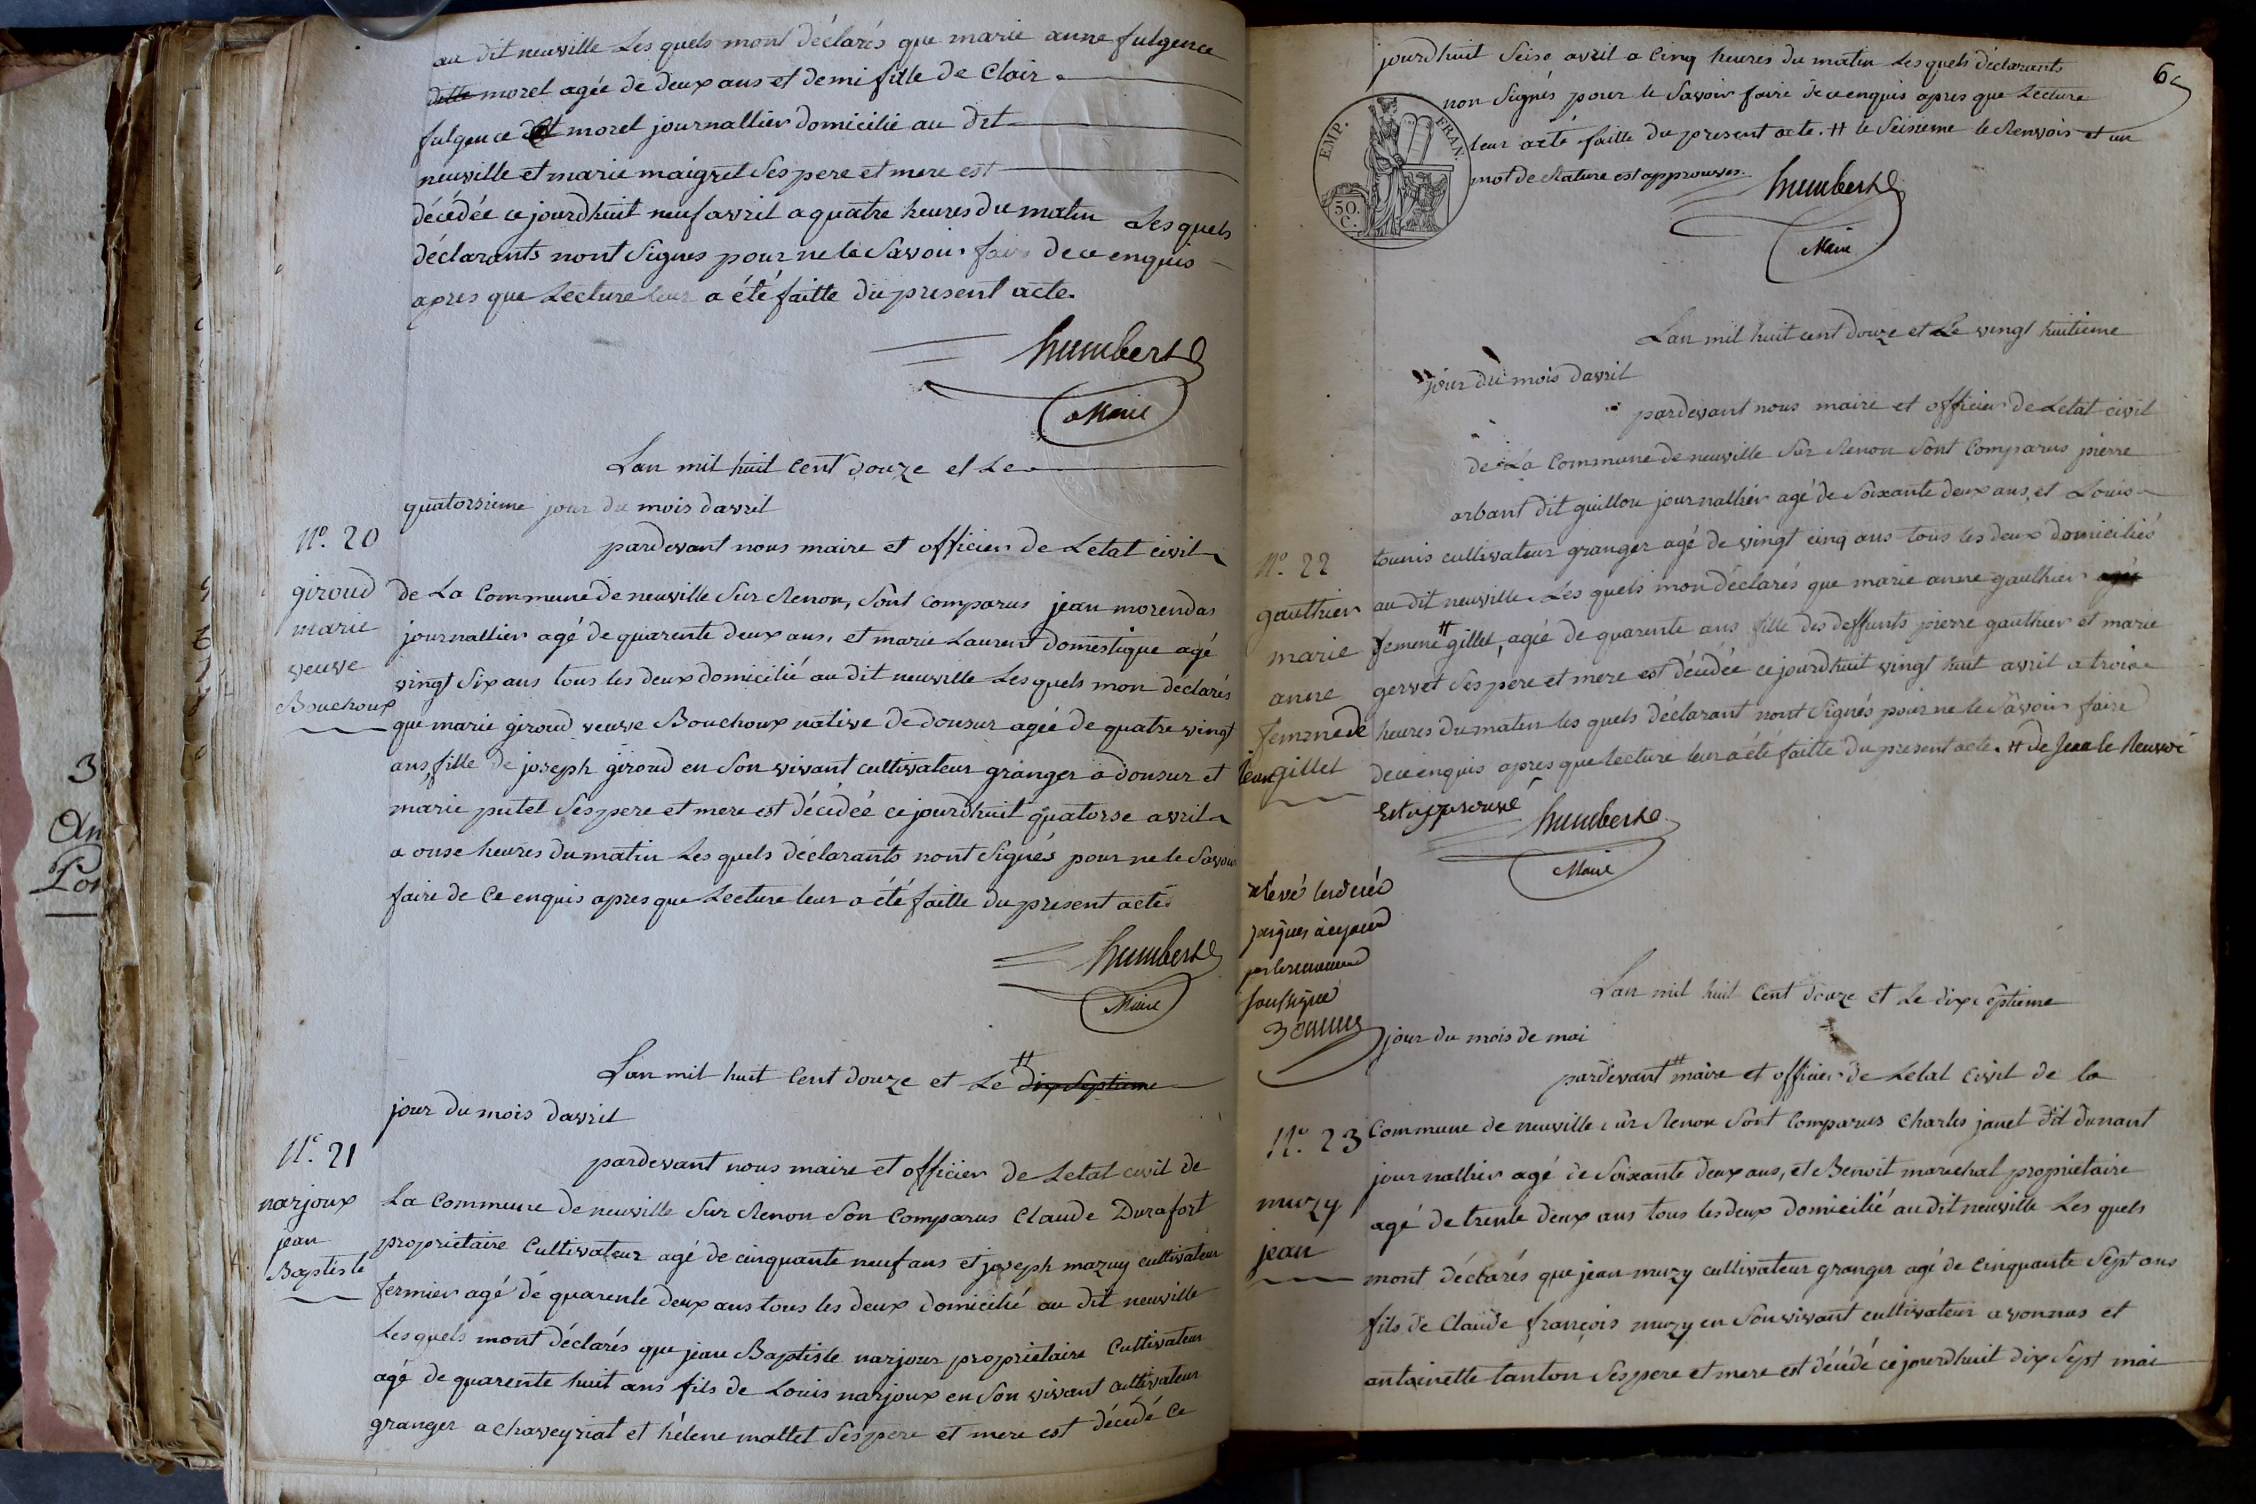 au dit neuville Les quels mont déclarés que marie anne fulgence
ditte morel agée de deux ans et demi fille de Clair
fulgence dit morel journallier domicilié au dit
neuville et marie maigret Ses pere et mere est
décédée ce jourdhuit neuf avril a quatre heures du matin Les quels
déclarants nont Signes pour ne le Savoir faire de ce enquis
apres que Lecture leur a été faitte du present acte.
humbert
Maire
Lan mil huit Cent douze et Le
quatorsieme jour du mois davril
pardevant nous maire et officier de Letat civil
N°. 20
giroud
marie
veuve
Bouchoux
de La Commune de neuville Sur Renon, Sont comparus jean morendas
journallier agé de quarente deux ans, et marie Laurent domestique agé
vingt Six ans tous les deux domicilié au dit neuville Les quels mon déclarés
que marie giroud veuve Bouchoux native de donsur agée de quatre vingt
ans, fille de joseph giroud en Son vivant cultivateur granger a donsur et
marie putet Ses pere et mere est décédée ce jourdhuit quatorse avril
a onse heures du matin Les quels déclarants nont Signés pour ne le Savoir
faire de Ce enquis apres que Lecture leur a été faitte du present acte
humbert
Maire
Lan mil huit Cent douze et Le # dix Septieme
jour du mois davril
pardevant nous maire et officier de Letat civil de
N°. 21
narjoux
jean
Baptiste
La Commune de neuville Sur Renon Son Comparus Claude Durafort
proprietaire Cultivateur agé de cinquante neuf ans et joseph mazuy cultivateur
fermier agé de quarente deux ans tous les deux domicilié au dit neuville
Les quels mont déclarés que jean Baptiste narjoux proprietaire Cultivateur
agé de quarente huit ans fils de Louis narjoux en Son vivant cultivateur
granger a chaveyriat et hélene mallet Ses pere et mere est décédé Ce
6
jourdhuit Seise avril a Cinq heures du matin Les quels déclarants
non Signés pour le Savoir faire de ce enquis apres que Lecture
leur acté faitte du present acte. # le Seisieme le Renvois et un
mot de Rature est approuvés.
EMP. FRAN.
50.
C.
humbert
Maire
Lan mil huit cent douze et Le vingt huitieme
jour du mois davril
pardevant nous maire et officier de Letat civil
de La Commune de neuville Sur Renon Sont Comparus pierre
arbant dit guillon journallier agé de Soixante deux ans, et Louis
N°. 22
gauthier
marie
anne
femme de
jean gillet
tounis cultivateur granger agé de vingt cinq ans tous les deux domiciliés
au dit neuville. Les quels mon déclarés que marie anne gauthier agée
femme # gillet, agée de quarente ans fille des deffunts pierre gauthier et marie
gervet Ses pere et mere est décédée ce jourdhuit vingt huit avril a trois
heures du matin les quels déclarant nont Signés pour ne le Savoir faire
de ce enquis apres que Lecture leur a été faitte du present acte. # de jean le Renvoi
Est approuvé
humbert
Maire
relevé les décés
jusques à ce jour
soussigné
Lan mil huit Cent douze et Le dix septieme
jour du mois de mai
pardevant # maire et officier de Letat Civil de la
N°. 23
muzy
jean
Commune de neuville sur Renon Sont Comparus Charles janet dit dunant
journallier agé de Soixante deux ans, et Benoit marechal proprietaire
agé de trente deux ans tous les deux domicilié au dit neuville Les quels
mont déclarés que jean muzy cultivateur granger agé de Cinquante Sept ans
fils de Claude françois muzy en Son vivant cultivateur a vonnas et
antoinette tanton Ses pere et mere est décédé ce jourdhuit dix Sept mai